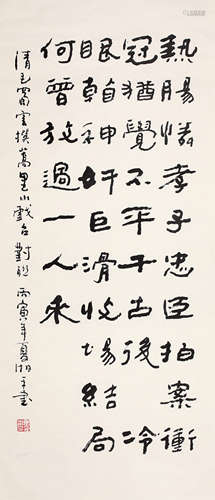 熱腸憐孝子忠臣拍案衝
冠猶覺不平千古後冷
眼看神奸巨滑收場結局
何曾放過一人來
清撰萬里小戲台對聯 丙寅年夏書